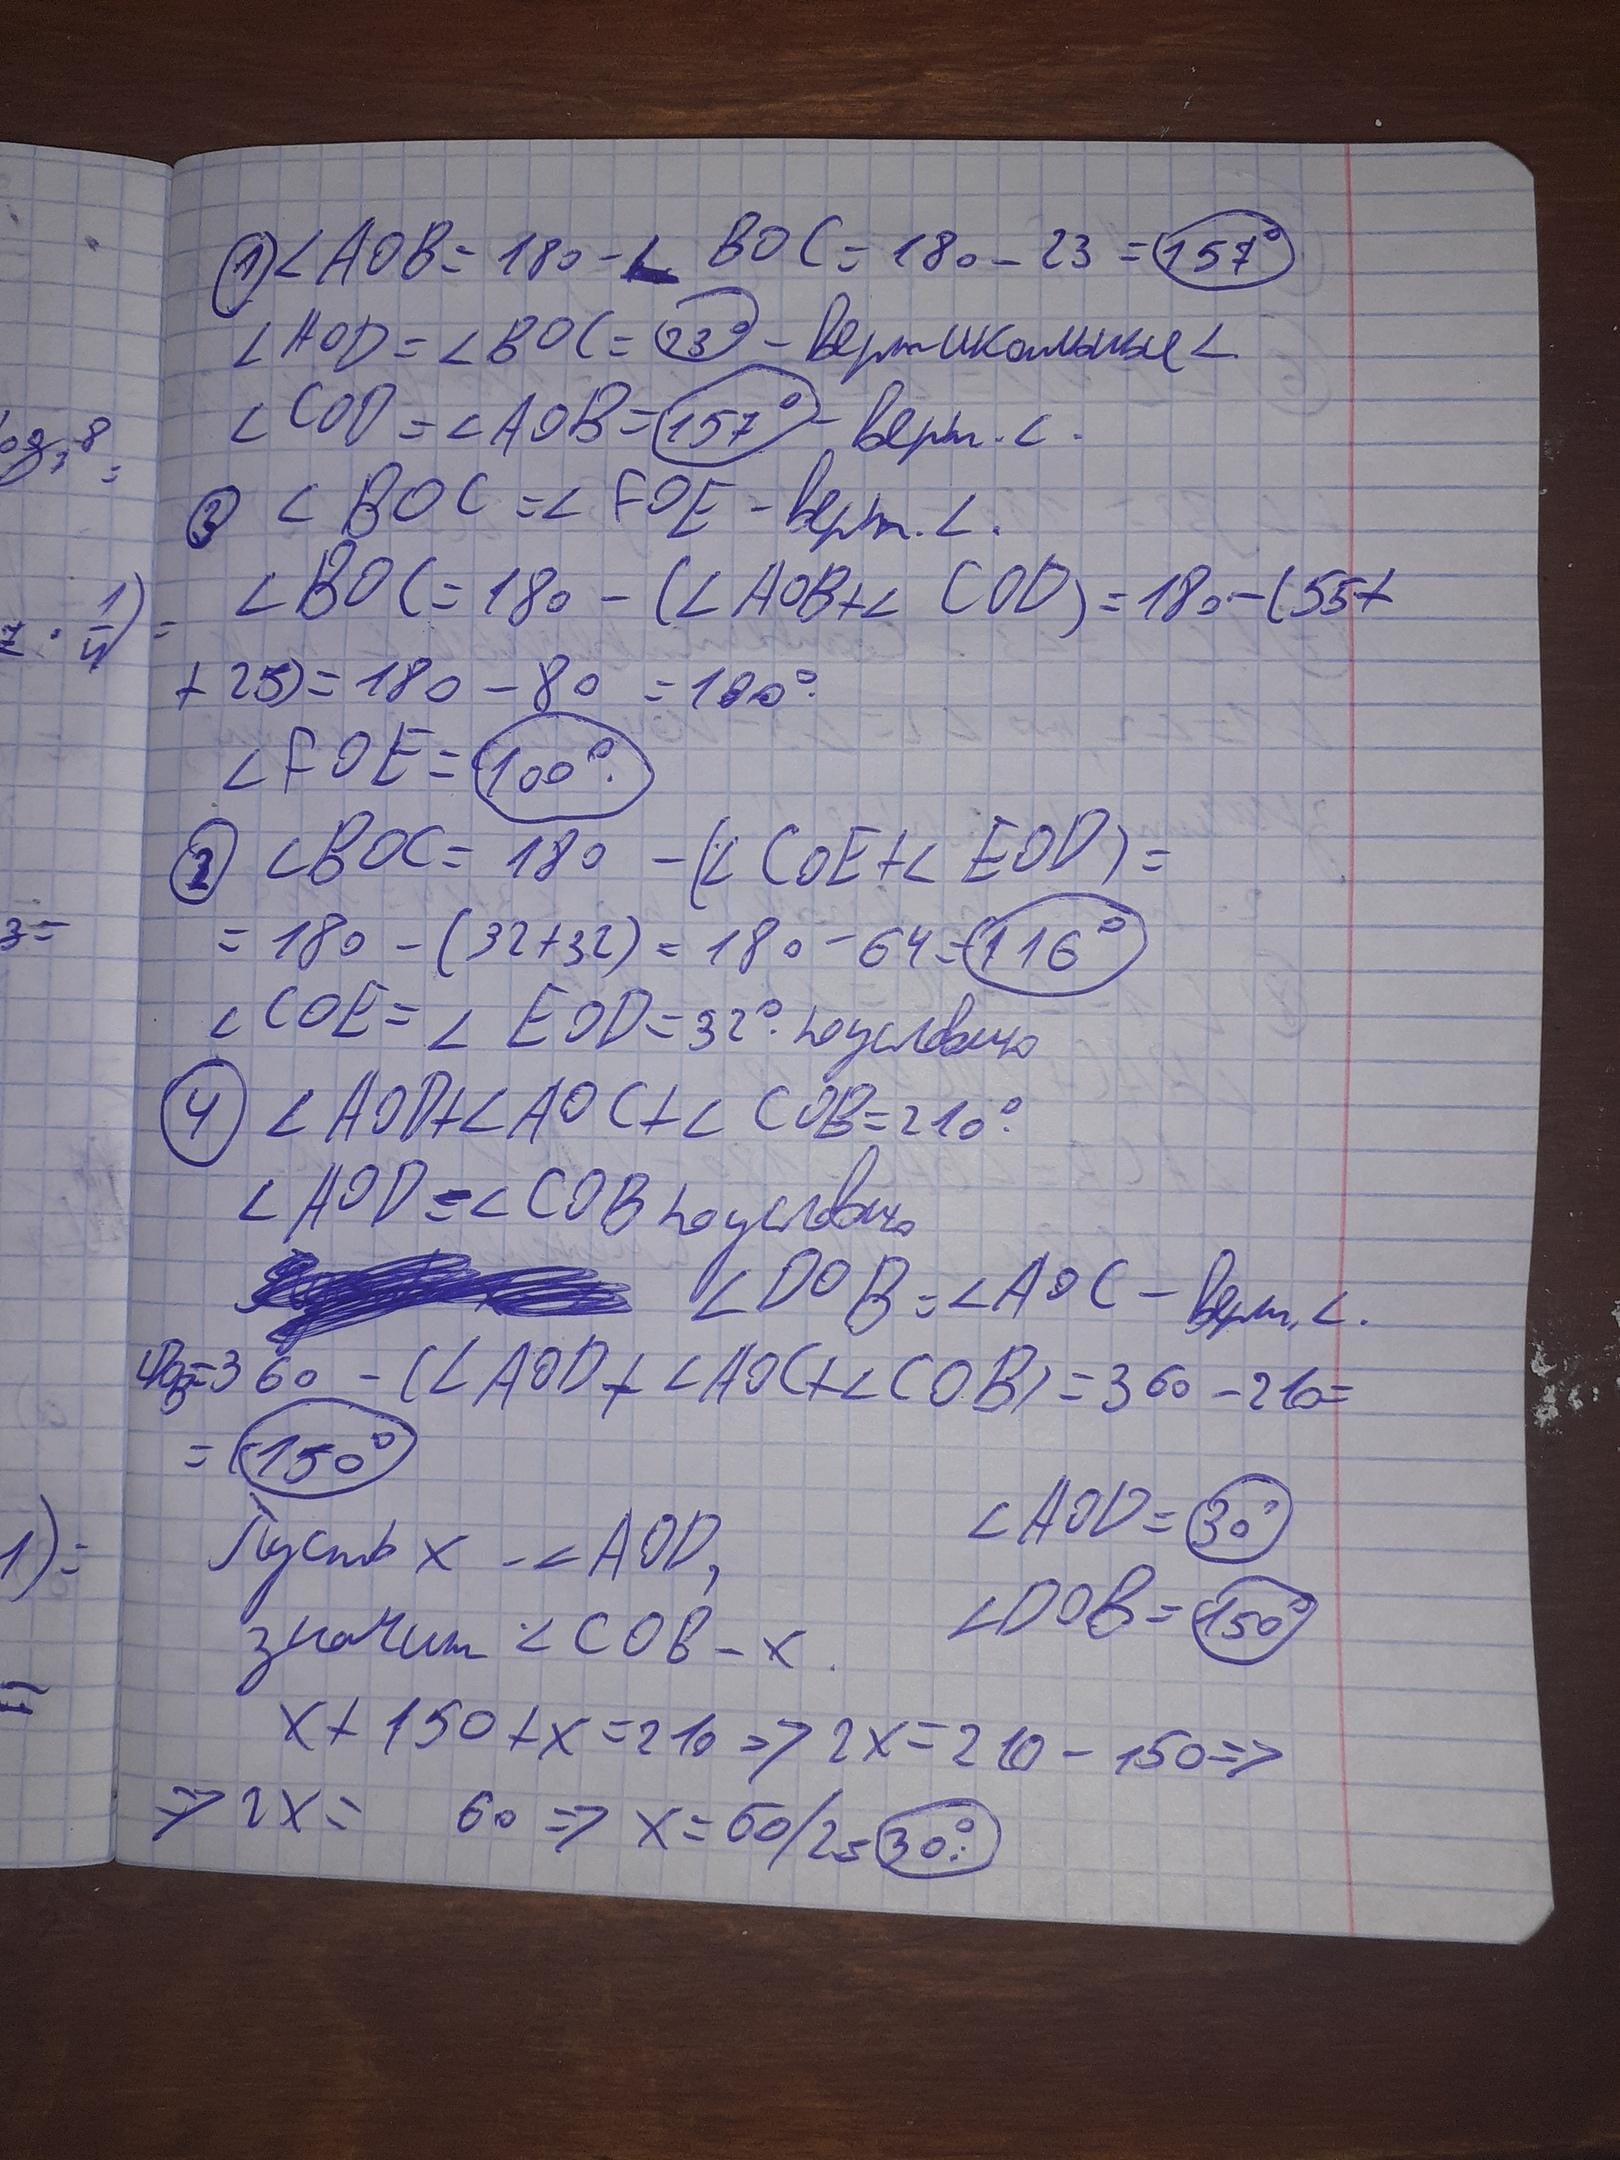 log₃ 8 =
7 · 1/4) =
3 =
1) =
① ∠AOB = 180 - ∠ BOC = 180 - 23 = 157°
∠AOD = ∠BOC = 23° - вертикальные ∠
∠COD = ∠AOB = 157° - верт. ∠.
③ ∠BOC = ∠FOE - верт. ∠.
∠BOC = 180 - (∠AOB + ∠COD) = 180 - (55 +
+ 25) = 180 - 80 = 100°.
∠FOE = 100°.
② ∠BOC = 180 - (∠COE + ∠EOD) =
= 180 - (32 + 32) = 180 - 64 = 116°
∠COE = ∠EOD = 32°. по условию
④ ∠AOD + ∠AOC + ∠COB = 210°.
∠AOD = ∠COB по условию
∠DOB = ∠AOC - верт. ∠.
= 360 - (∠AOD + ∠AOC + ∠COB) = 360 - 210 =
= 150°
Пусть x - ∠AOD,
∠AOD = 30°
значит ∠COB - x.
∠DOB = 150°
x + 150 + x = 210 => 2x = 210 - 150 =>
=> 2x = 60 => x = 60/2 = 30°.